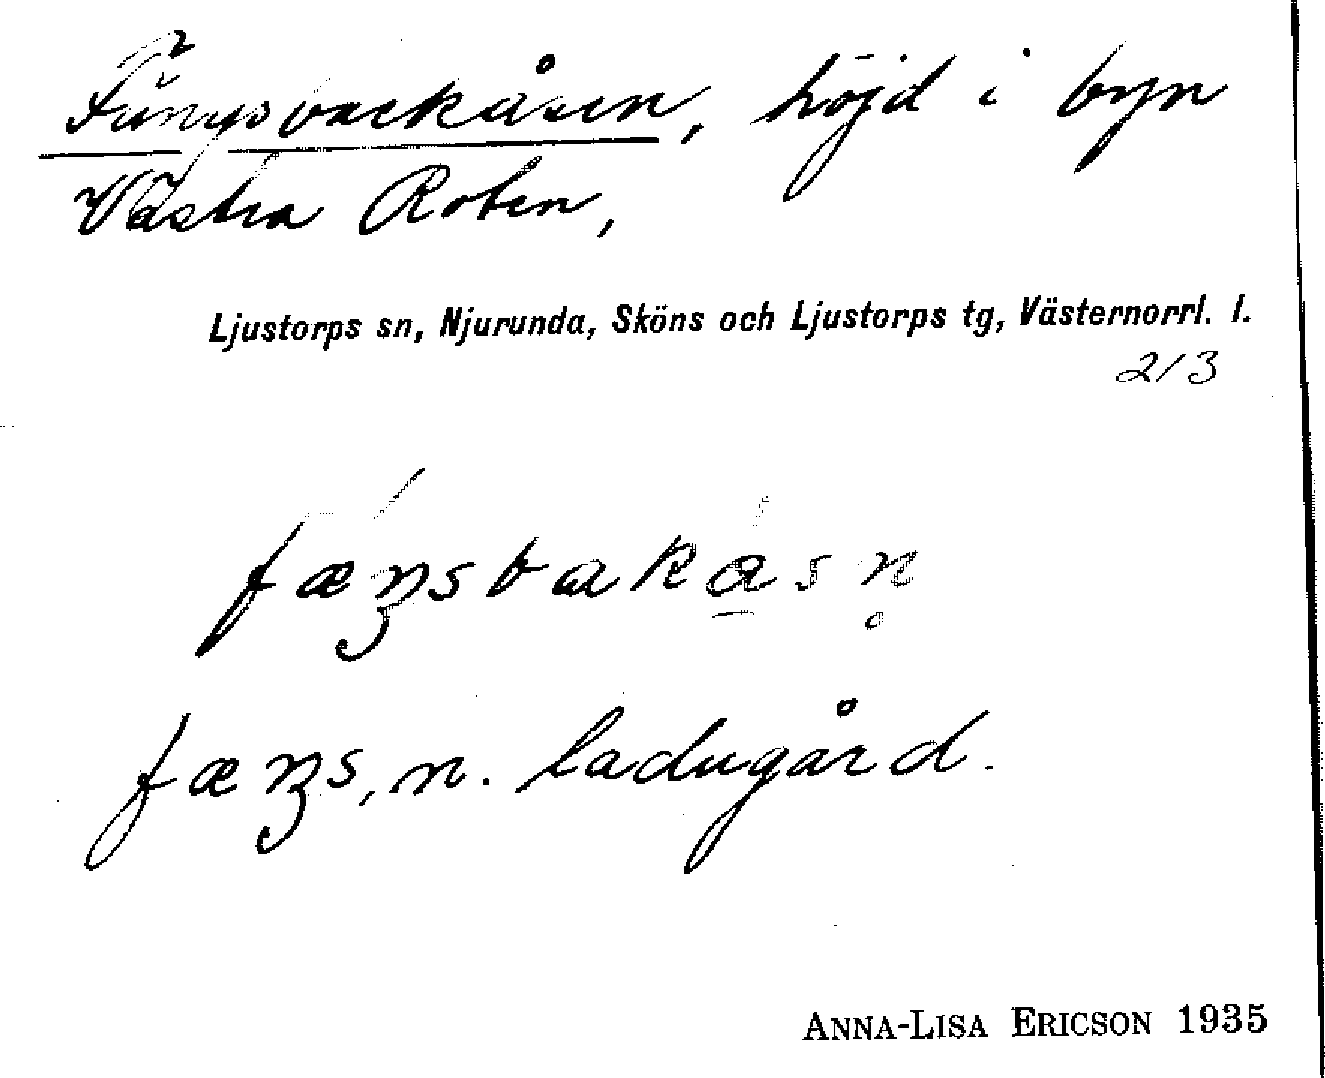 höjd i byn
Västra Roten,
Ljustorps sn, Njurunda, Sköns och Ljustorps tg, Västernorrl. l.
2/3
fæŋsbakåsn̥
fæŋs, n. ladugård.
ANNA-LISA ERICSON 1935